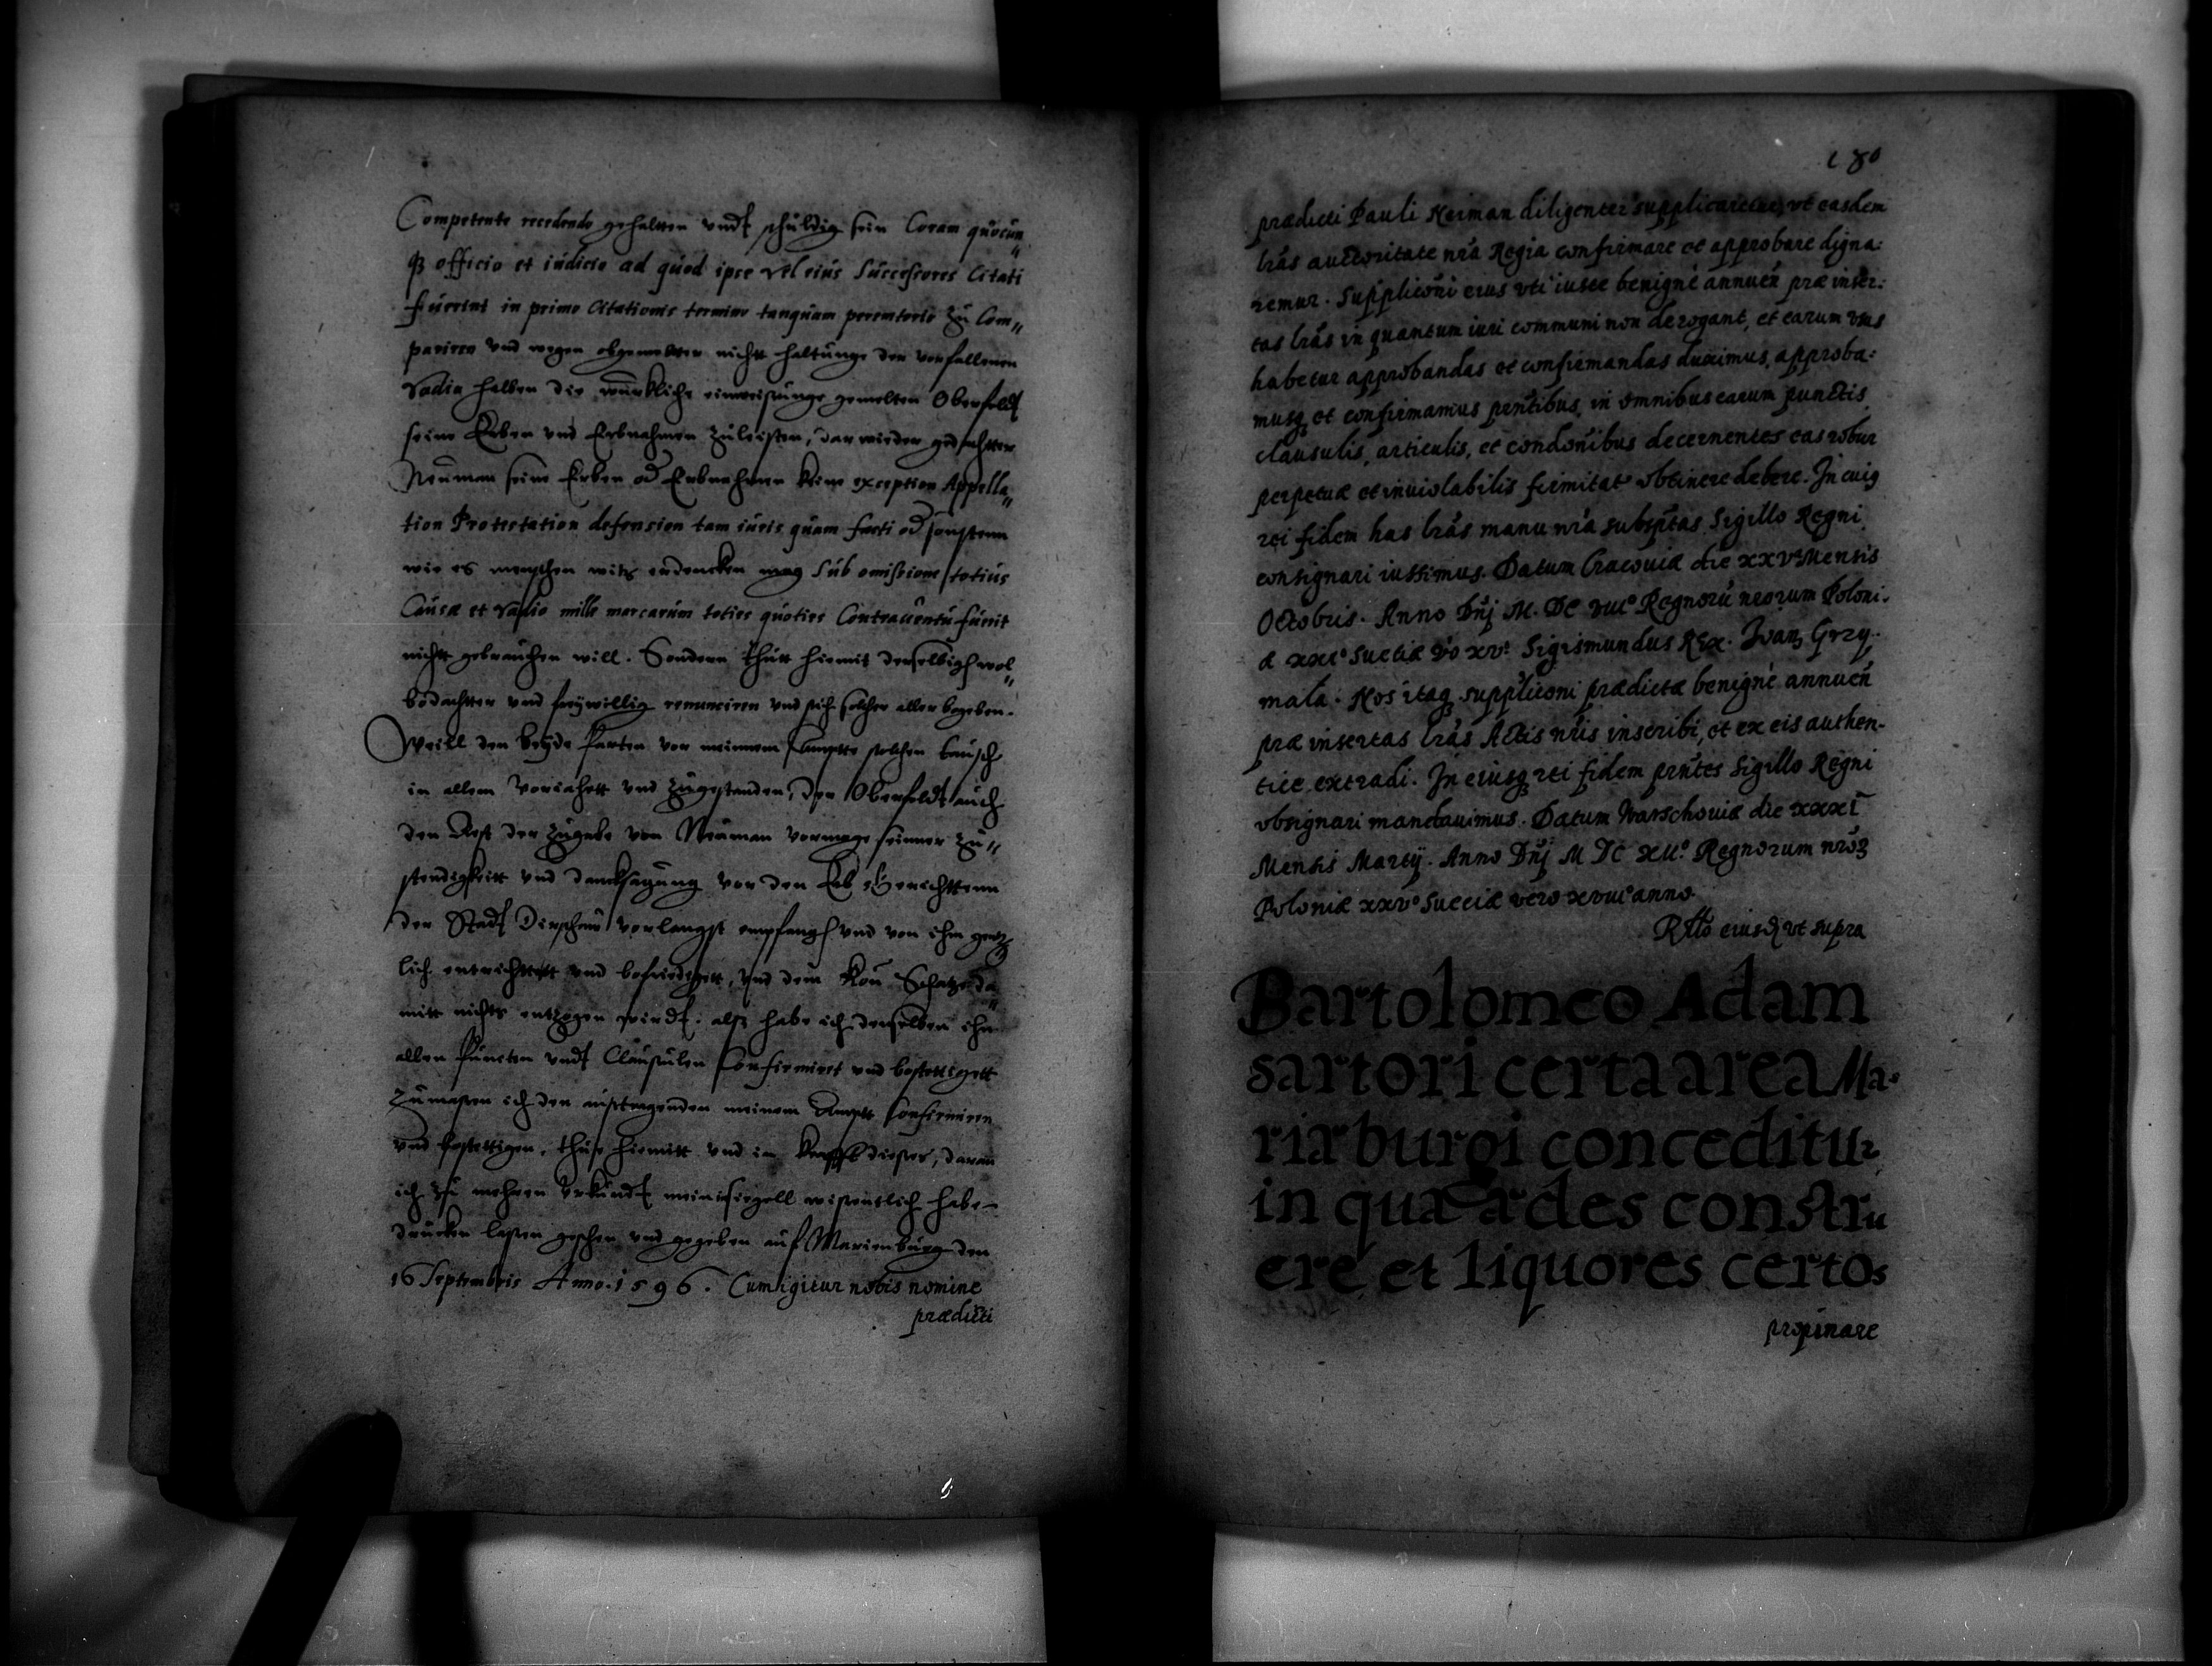 Competente recedendo gehalten vndt schuldig sein Coram quocun„
qȝ officio et iudicio ad quod ipse vel eius Successores Citati
fuerint in primo Citationis termino tanquam peremtorio zu Com„
pariren vnd wegen obgemelter nicht haltunge der verfallenen
Vadia halben die würkliche einweisunge gemelten Oberfeldt
seine Erben vnd Erbnahmen zuleisten, darwieder gedachter
Neuman seine Erben od Erbnahmen keine exception Appella„
tion Protestation defension tam iuris quam facti od sonsten
wie es menschen witz erdencken mag Sub omissione totius
Causæ et vadio mille marcarum toties quoties Contrauentu fuerit
nicht gebrauchen will. Sondern thutt hiemit derselbigh wol„
bedachter vnd freywillig renunciren vnd sich solcher aller begeben.
Weill den beyde Parten vor meinem Ampte solchen tausch
in allem vorjahett vnd zugestanden, der Oberfeldt auch
den Rest der zugabe von Neuman vormage seiner zu„
stendigkeitt vnd dancksagung vor den Erb Gerichtten
der Stadt Dirschau vorlangst empfangh vnd von ihm
lich entrichtett vnd befriediget, vnd dem Kön Schatze da„
mitt nichts entzogen wirdt: alß habe ich denselben ihn
allen Puncten vndt Clausulen Confirmiret vnd bestettigett
Zumaßen ich den meinem Ampt Confirmiren
vnd bestettigen, thue hiemitt vnd in krafft dieses, daran
ich zu mehren Vrkundt mein siegell wissentlich habe
drucken lassen geschen vnd gegeben auf Marienburg den
16 Septembris Anno. 1596. Cum igitur nobis nomine
prædicti
180
prædicti Pauli Neiman diligenter supplicaretur, vt easdem
lrãs auctoritate nrã Regia confirmare et approbare digna:
remur. Suppliconi eius vti iustæ benigne annuen̄ præ inser:
tas lrãs in quantum iuri communi non derogant, et earum vsus
habetur approbandas et confirmandas duximus, approba:
musq et confirmamus prntibus, in omnibus earum punctis
clausulis, articulis, et condonibus decernentes eas robur
perpetuæ et inuiolabilis firmitat obtinere debere. In cuig
rei fidem has lrãs manu nrã subsptas Sigillo Regni
consignari iussimus. Datum Cracouiæ die xxv Mensis
Octobris. Anno Dnj M. DC viiiº Regnorū nrorum Poloni.
æ xxiº Sueciæ vo xvº. Sigismundus Rex. Ivan Grzy.
mala. Nos itaq suppliconi prædictæ benigne annuen̄
præ insertas lrãs Actis nris inscribi, et ex eis authen-
tice extradi. In eiusq rei fidem prntes Sigillo Regni
obsignari mandauimus. Datum Warschouiæ die xxxi
Mensis Martij. Anno Dnj M DC xiiº. Regnorum nroȝ
Poloniæ xxvº Sueciæ vero xviiiº anno.
Rtto eiusd vt supra
Bartolomeo Adam
sartori certa area Ma-
riæburgi conceditur
in qua ædes constru
ere et liquores certos
propinare